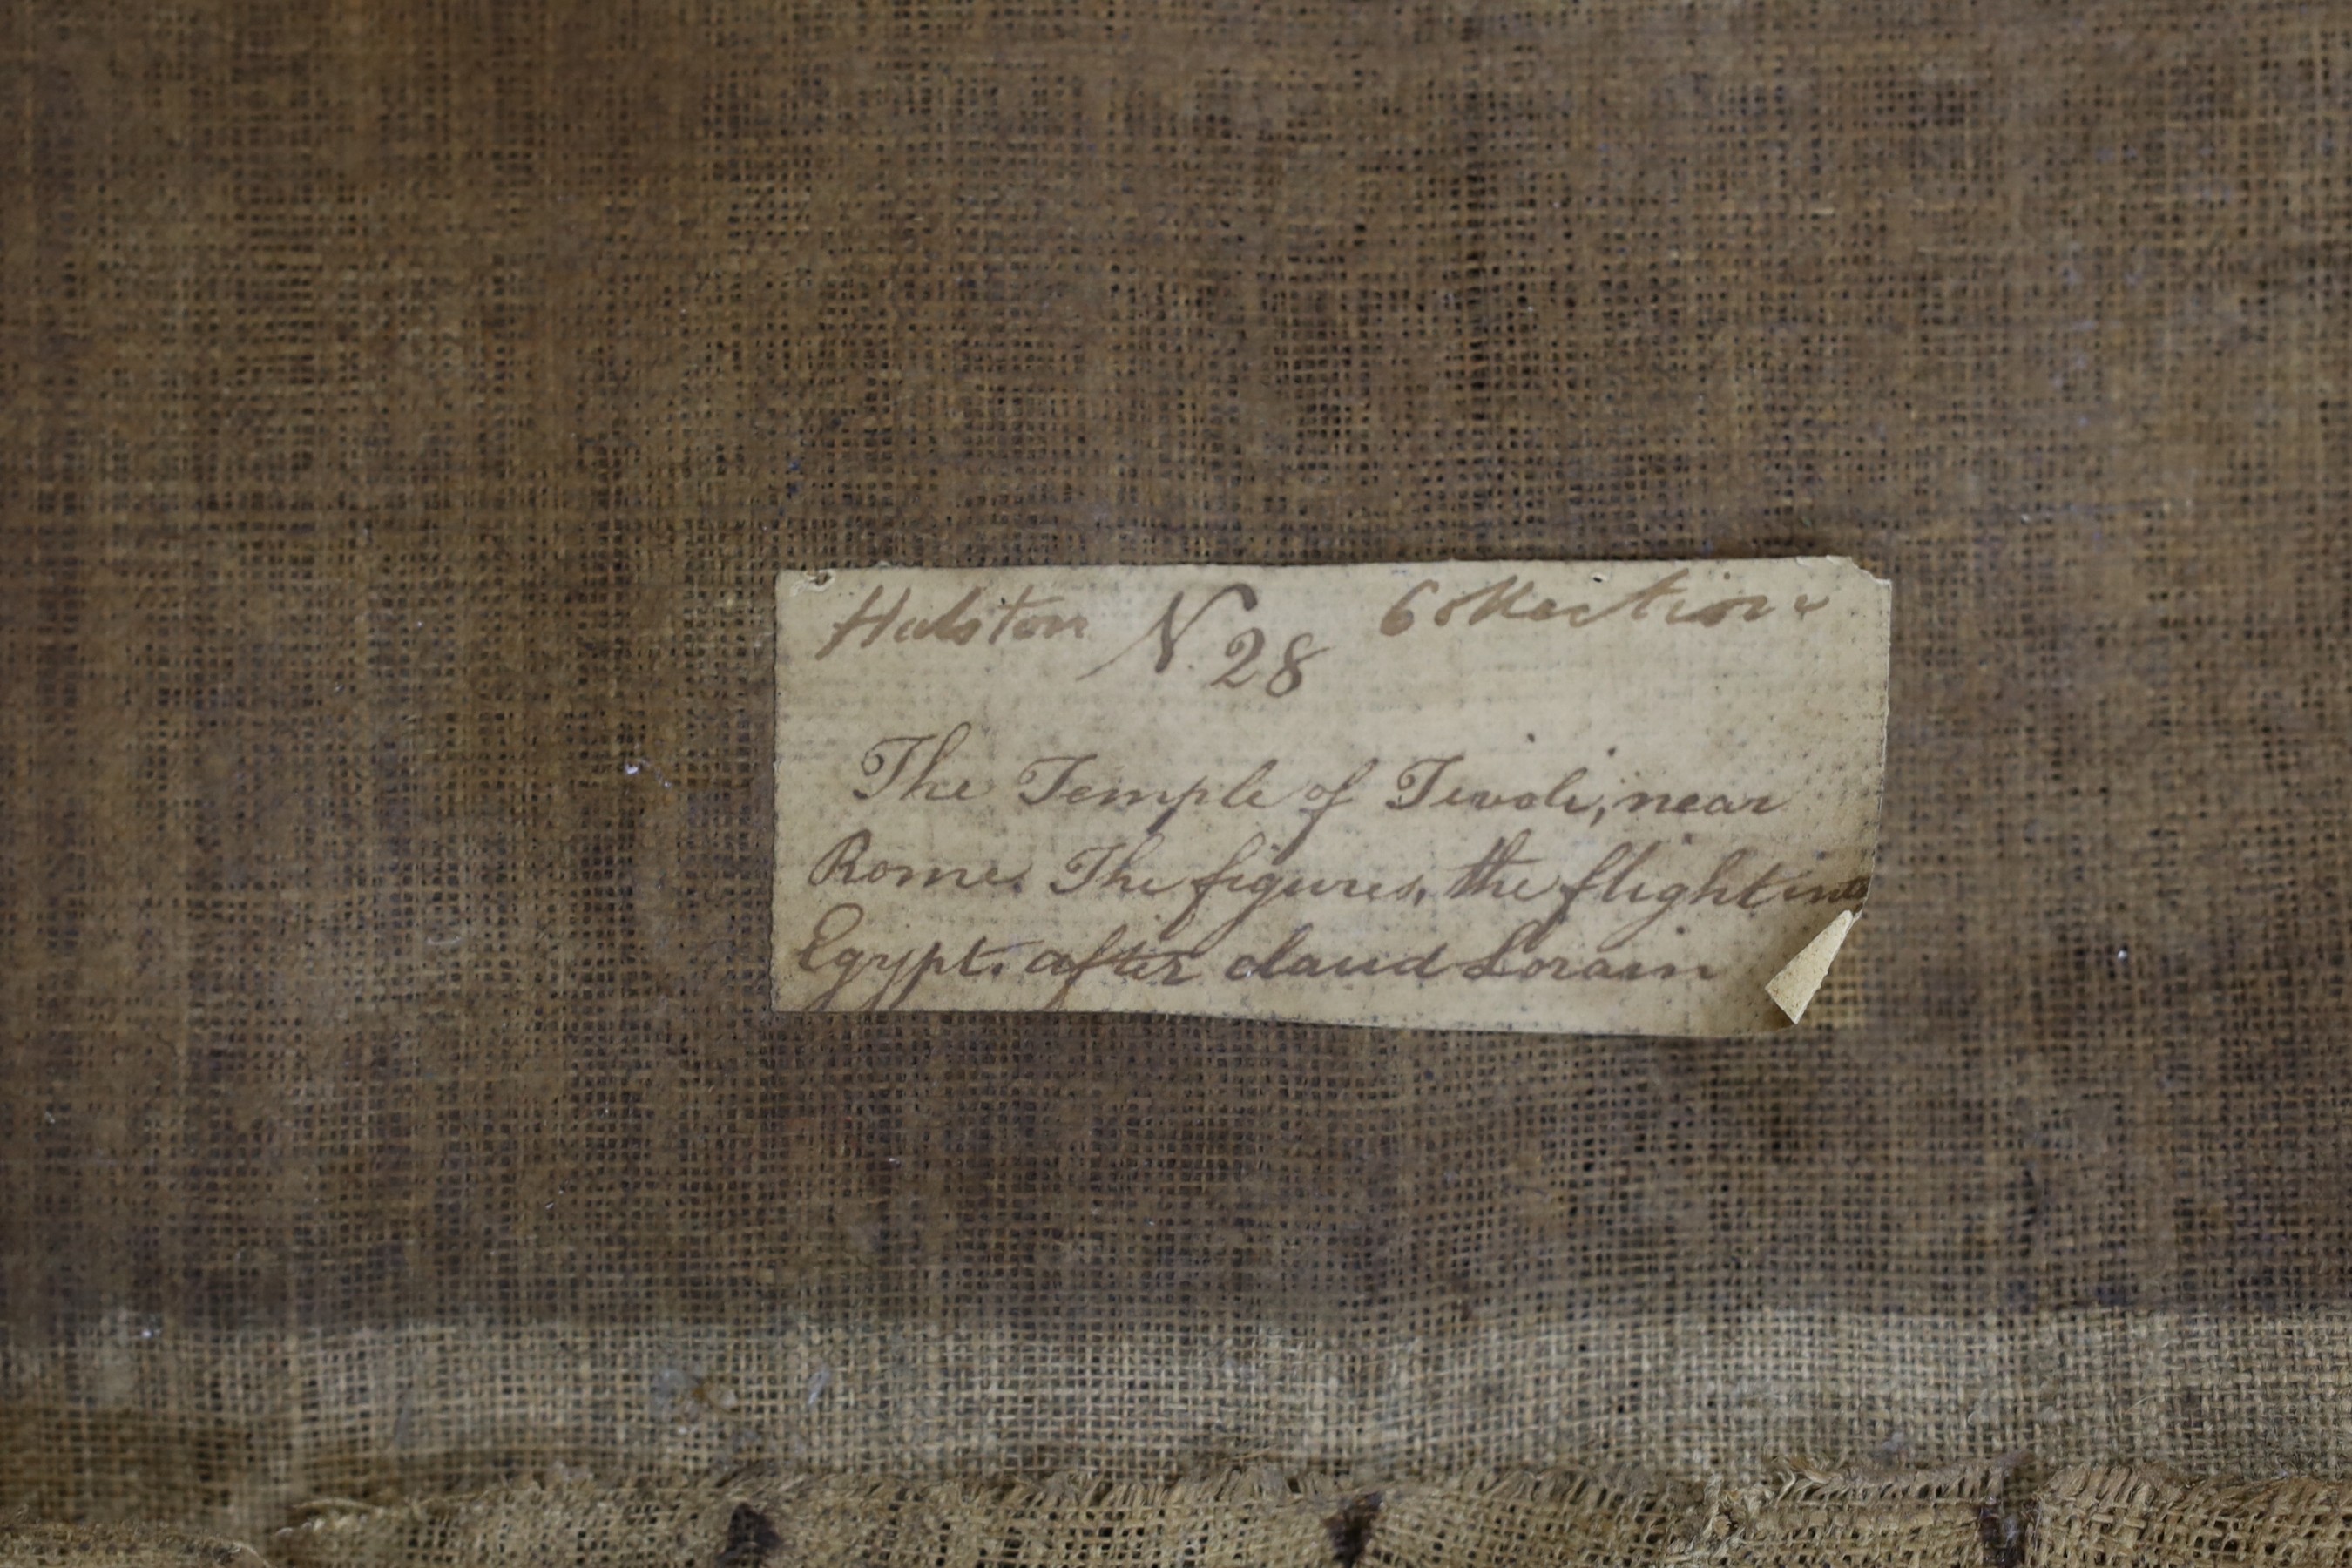 Halston N. 28 Collection
The Temple of Tivoli, near
Rome. The figures, the flight into
Egypt. after Claud Lorain